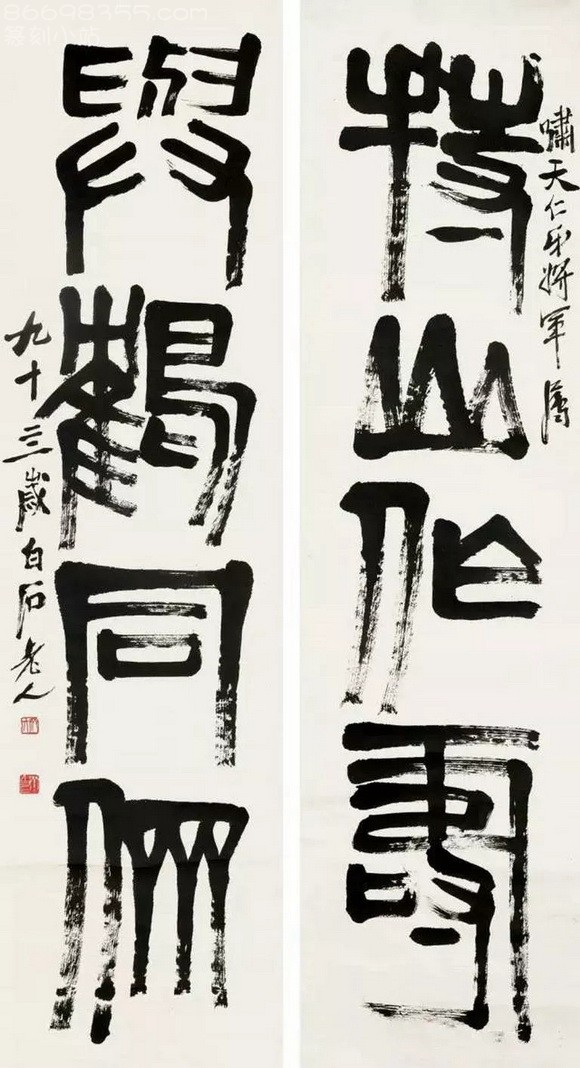 86698355.com
篆刻小站
持山作壽
嘯天仁弟將軍屬
與鶴同
九十三歲白石老人